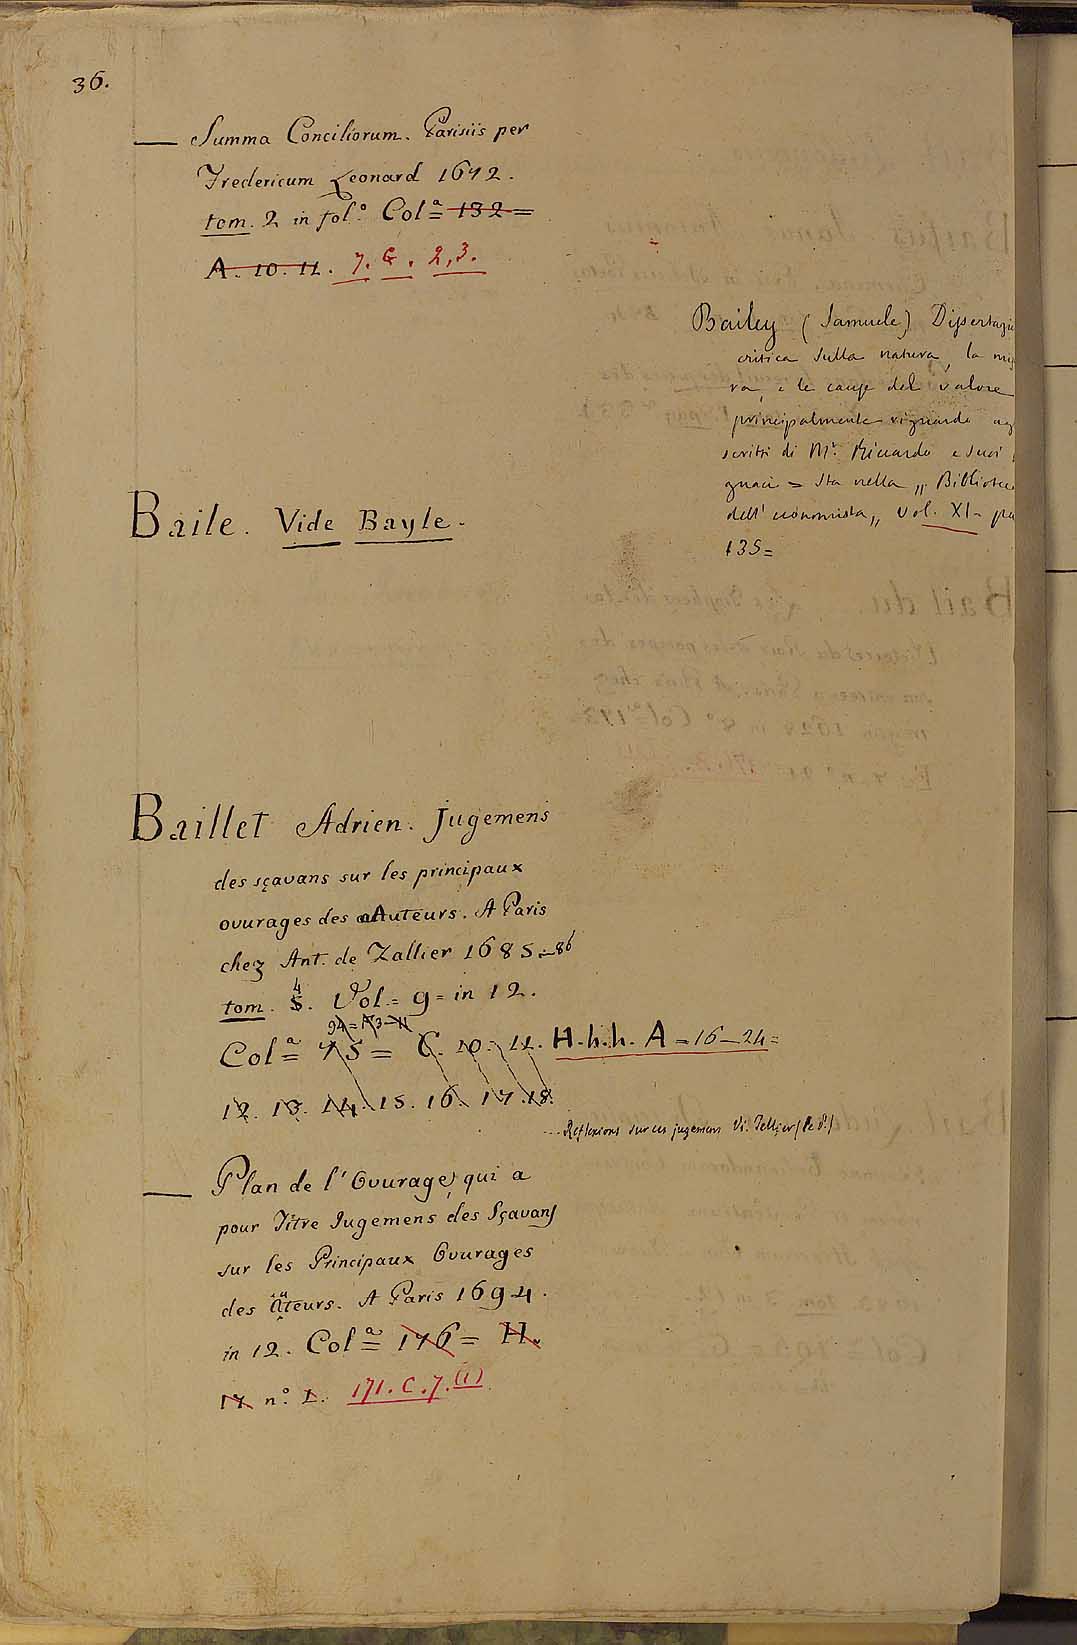 36.
— Summa Conciliorum. Parisiis per
Fredericum Leonard 1672.
tom. 2 in fol.º Col.ª 132 =
A. 10. 11. 7. G. 2,3.
Bailey (Samuele) Dissertazi
critica sulla natura, la mis
ra, e le cause del valore
principalmente riguardo ag
scritti di Mr. Riccardo e suoi
guaci = Sta nella „ Bibliotec
dell' economista „ Vol. XI - pa
135 =
Baile. Vide Bayle.
Baillet Adrien. Jugemens
des sçavans sur les principaux
ouvrages des Auteurs. A Paris
chez Ant. de Zallier 1685 = 86
tom. 4 5. Vol. = 9 = in 12.
94 = 173 - H
Col.ª = 75 = C. 10. 11. H.h.h. A = 16 - 24 =
12. 13. 14. 15. 16. 17. 18.
... Reflexions sur ces jugemens Vi. Tellier (le P.)
— Plan de l'Ouvrage, qui a
pour Titre Jugemens des Sçavans
sur les Principaux Ouvrages
des Auteurs. A Paris 1694.
in 12. Col.ª = 176 = H.
17 n.º 1. 171. C. 7. (1)